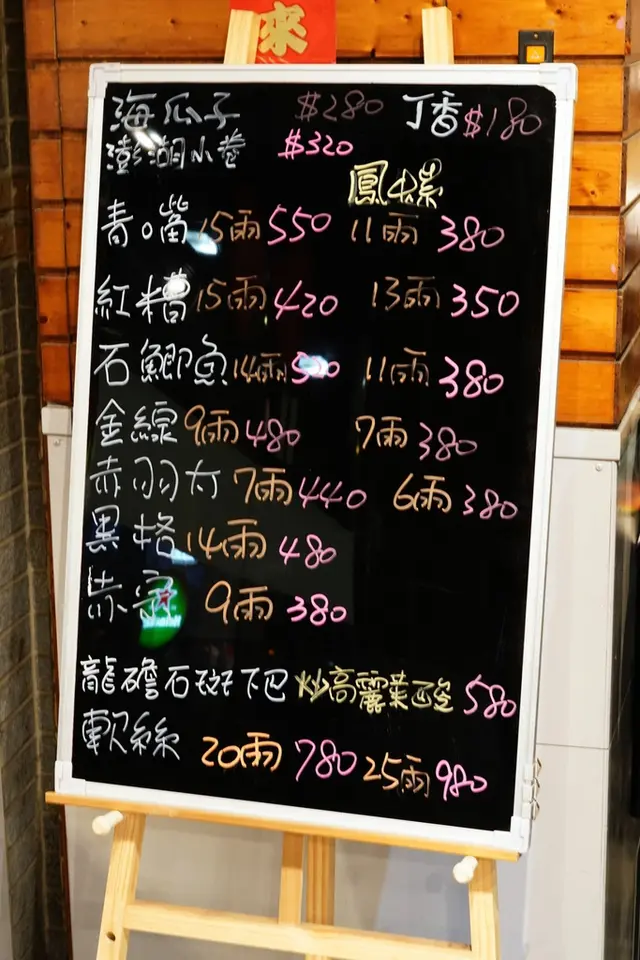 來
海瓜子 $280 丁香 $180
澎湖小卷 $320
鳳螺
青嘴 15兩 550 11兩 380
紅糟 15兩 420 13兩 350
石鯽魚 14兩 11兩 380
金線 9兩 480 7兩 380
赤羽太 7兩 440 6兩 380
黑格 14兩 480
赤 9兩 380
龍膽石斑下巴 炒高麗菜酸 580
軟絲 20兩 780 25兩 980